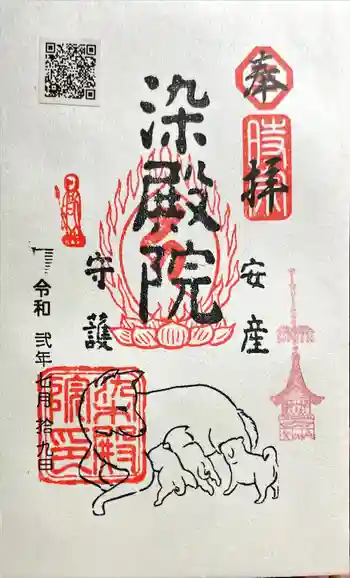 奉拝
染殿院
安産
守護
令和 弐年七月拾九日
染殿院印